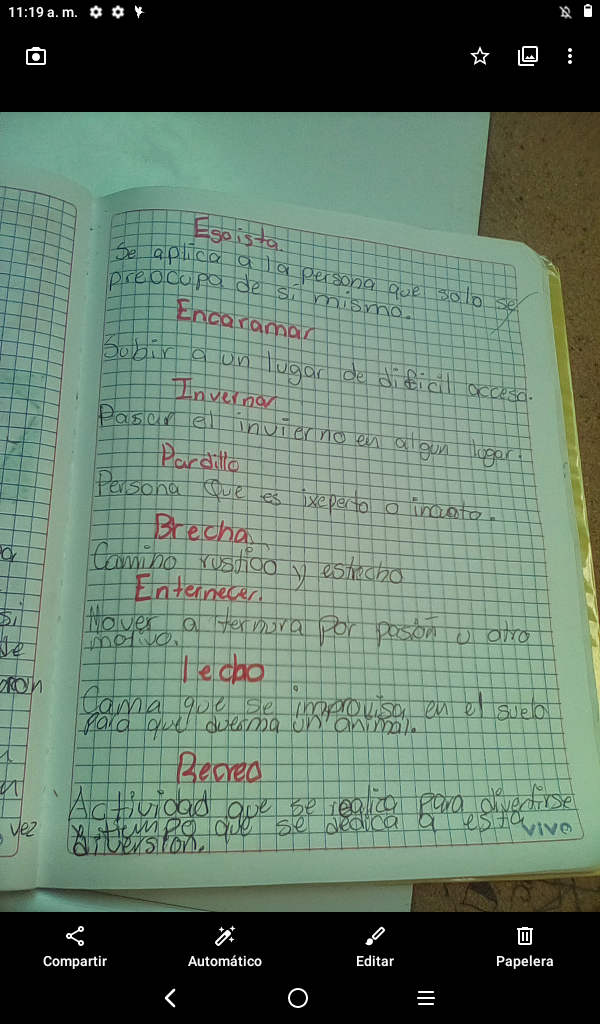 11:19 a. m.
Egoista.
Se aplica a la persona que solo se
preocupa de si mismo.
Encaramar
Subir a un lugar de dificil acceso.
Invernar
Pasar el invierno en algun lugar.
Pardillo
Persona que es ixeperto o incauto.
Brecha
Camino rustico y estrecho
Enternecer.
Mover a ternura por pasión u otro
motivo.
lecho
Cama que se improvisa en el suelo
para que duerma un animal.
Recreo
Actividad que se realiza para divertirse
y tiempo que se dedica a esta
diversion.
vivo
si
vez
Compartir
Automático
Editar
Papelera